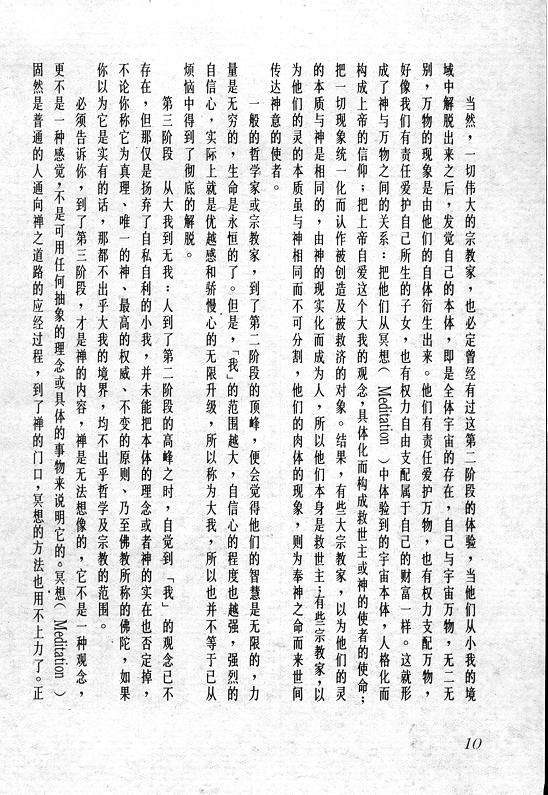 当然，一切伟大的宗教家，也必定曾经有过这第二阶段的体验，当他们从小我的境
域中解脱出来之后，发觉自己的本体，即是全体宇宙的存在，自己与宇宙万物，无二无
别，万物的现象是由他们的自体衍生出来。他们有责任爱护万物，也有权力支配万物，
好像我们有责任爱护自己所生的子女，也有权力自由支配属于自己的财富一样。这就形
成了神与万物之间的关系：把他们从冥想（Meditation）中体验到的宇宙本体，人格化而
构成上帝的信仰；把上帝自爱这个大我的观念，具体化而构成救世主或神的使者的使命；
把一切现象统一化而认作被创造及被救济的对象。结果，有些大宗教家，以为他们的灵
的本质与神是相同的，由神的现实化而成为人，所以他们本身是救世主；有些宗教家，以
为他们的灵的本质虽与神相同而不可分割，他们的肉体的现象，则为奉神之命而来世间
传达神意的使者。
一般的哲学家或宗教家，到了第二阶段的顶峰，便会觉得他们的智慧是无限的，力
量是无穷的，生命是永恒的了。但是，「我」的范围越大，自信心的程度也越强，强烈的
自信心，实际上就是优越感和骄慢心的无限升级，所以称为大我，所以也并不等于已从
烦恼中得到了彻底的解脱。
第三阶段　从大我到无我：人到了第二阶段的高峰之时，自觉到「我」的观念已不
存在，但那仅是扬弃了自私自利的小我，并未能把本体的理念或者神的实在也否定掉，
不论你称它为真理、唯一的神、最高的权威、不变的原则、乃至佛教所称的佛陀，如果
你以为它是实有的话，那都不出乎大我的境界，均不出乎哲学及宗教的范围。
必须告诉你，到了第三阶段，才是禅的内容，禅是无法想像的，它不是一种观念，
更不是一种感觉，不是可用任何抽象的理念或具体的事物来说明它的。冥想（Meditation）
固然是普通的人通向禅之道路的应经过程，到了禅的门口，冥想的方法也用不上力了。正
10